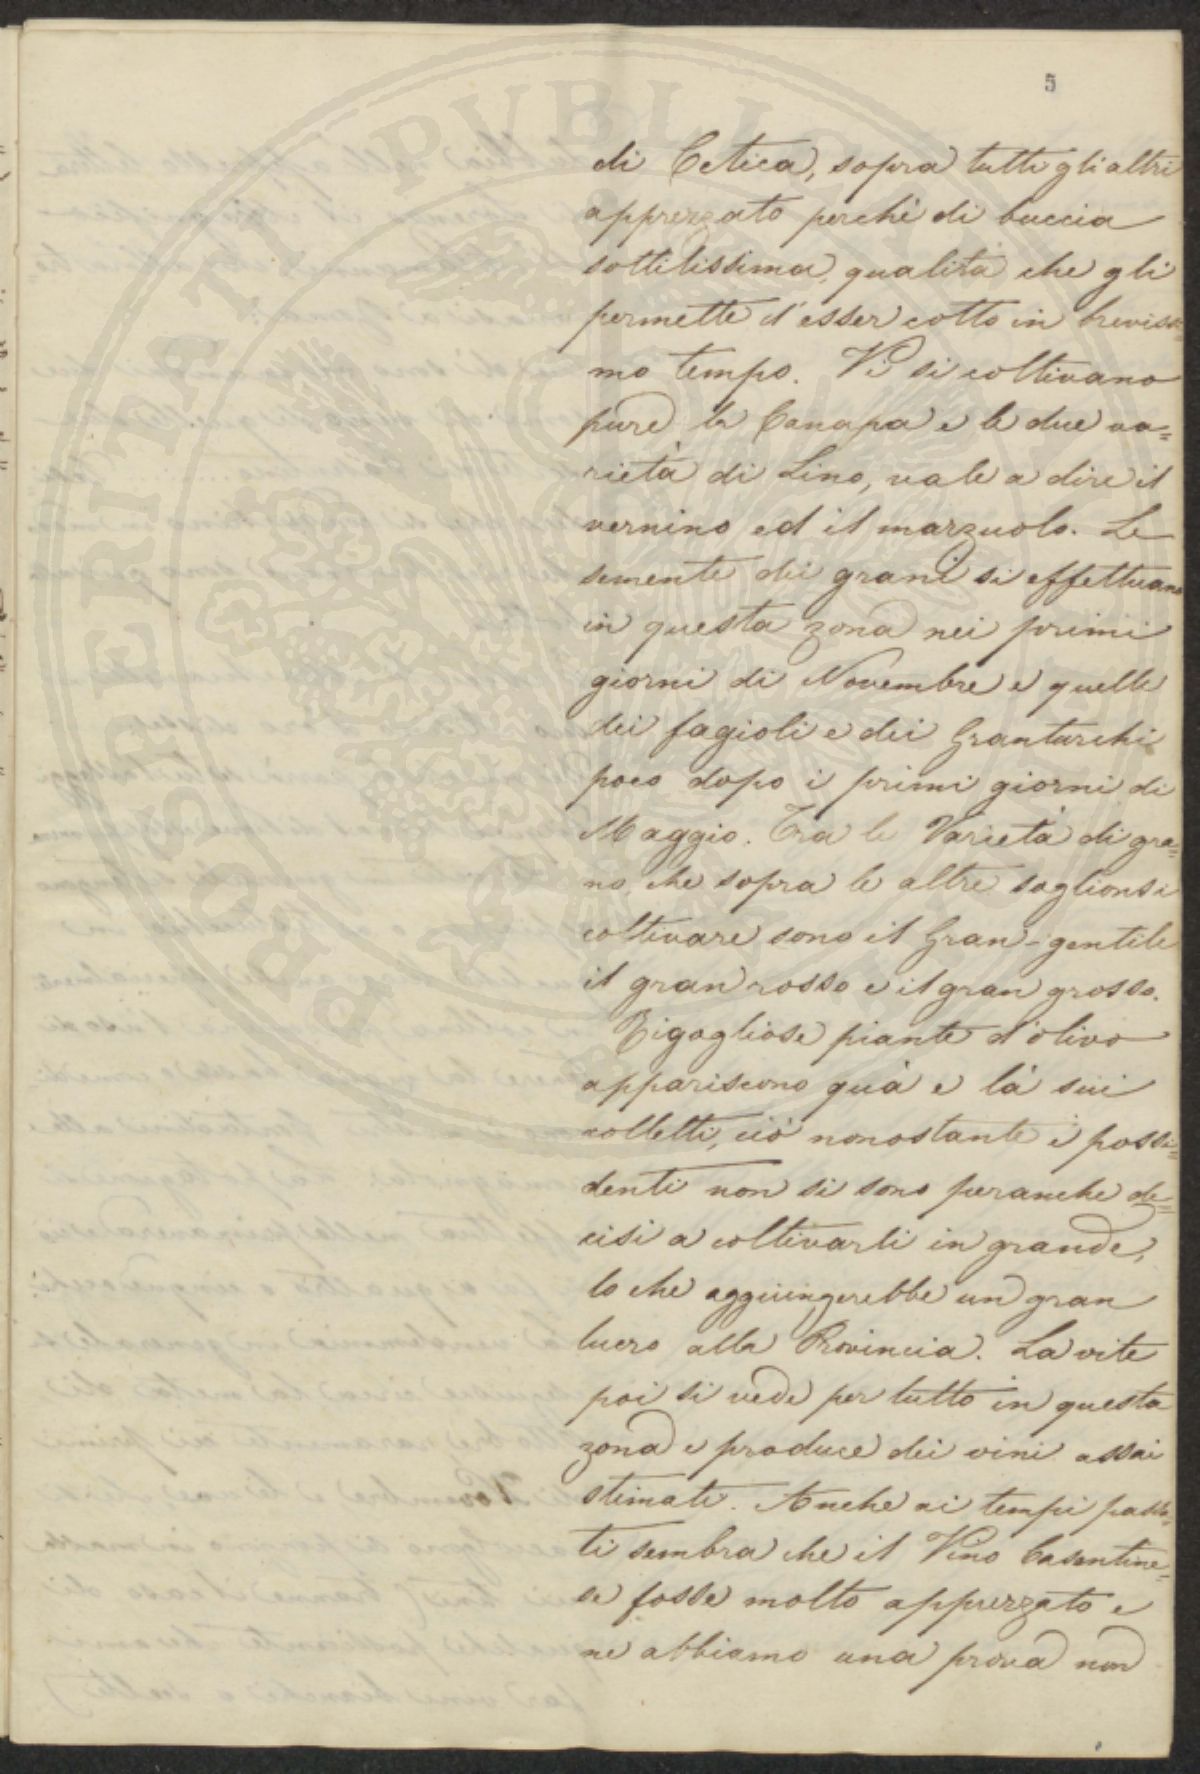 5
di Cetica, sopra tutti gli altri
apprezzato perchè di buccia
sottilissima, qualità che gli
permette d'esser cotto in brevissi=
mo tempo. Vi si coltivano
pure la Canapa e le due va=
rietà di Lino, vale a dire il
vernino ed il marzuolo. Le
semente dei grani si effettuano
in questa zona nei primi
giorni di Novembre e quelle
dei fagioli e dei Granturchi
poco dopo i primi giorni di
Maggio. Tra le Varietà di gra=
no, che sopra le altre soglionsi
coltivare sono il Gran-gentile
il gran rosso e il gran grosso.
Rigogliose piante d'olivo
appariscono quà e là sui
colletti, ciò nonostante i possi=
denti non si sono peranche de=
cisi a coltivarli in grande,
lo che aggiungerebbe un gran
lucro alla Provincia. La vite
poi si vede per tutto in questa
zona e produce dei vini assai
stimati. Anche ai tempi passa=
ti sembra che il Vino Casentine=
se fosse molto apprezzato e
ne abbiamo una prova non
PROSPERITATI PVBLICAE